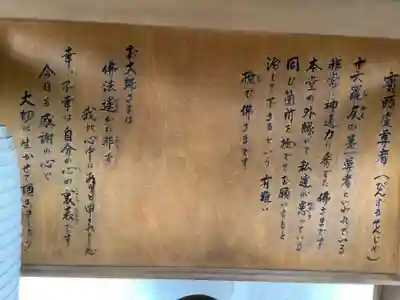 賓頭盧尊者（びんずるそんじゃ）
十六羅漢の第一尊者といわれている
非常に神通力の秀でた佛さまです
本堂の外縁にて私達が患っている
同じ箇所を捻でてお願いすると
治して下さるという有難い
撫で佛さまです
お大師さまは
佛法遥かに非ず
我が心中にありと申されました
幸、不幸は自分の心の裏表です
今日も感謝の心で
大切に生かせて頂きましょう